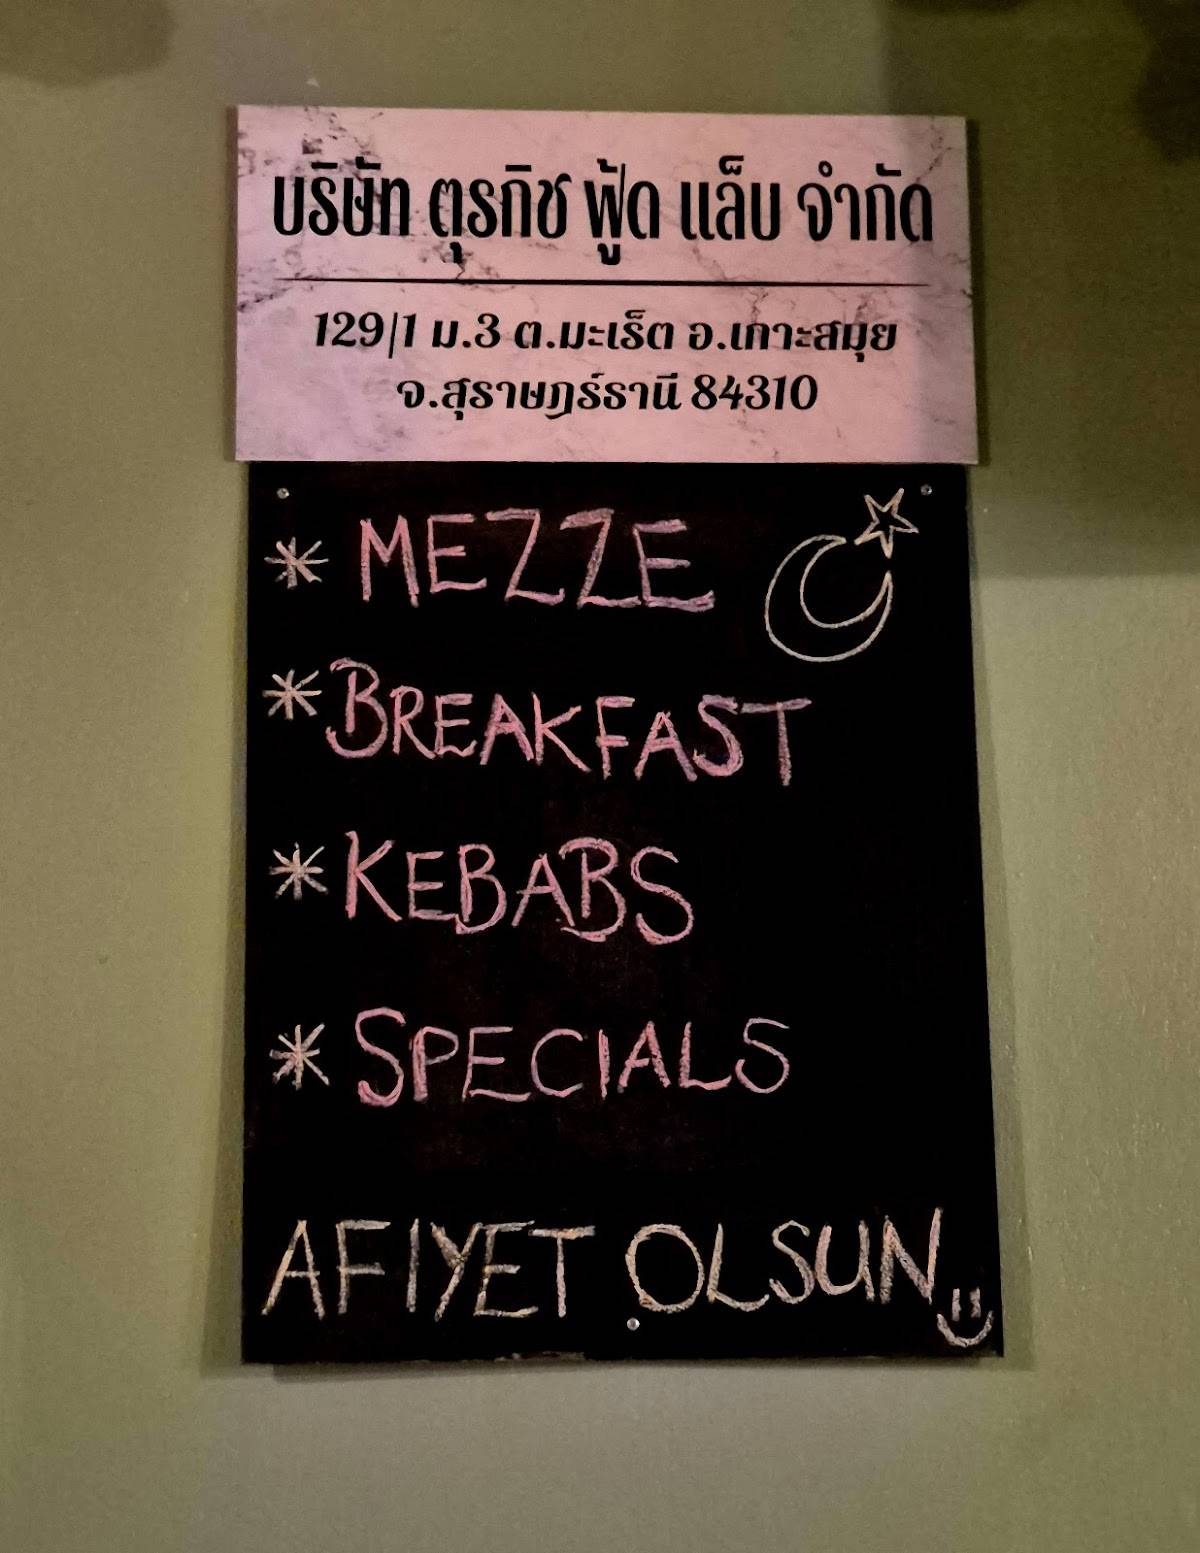 บริษัท ตุรกิช ฟู้ด แล็บ จำกัด
129/1 ม.3 ต.มะเร็ต อ.เกาะสมุย
จ.สุราษฎร์ธานี 84310
* MEZZE
* BREAKFAST
* KEBABS
* SPECIALS
AFIYET OLSUN